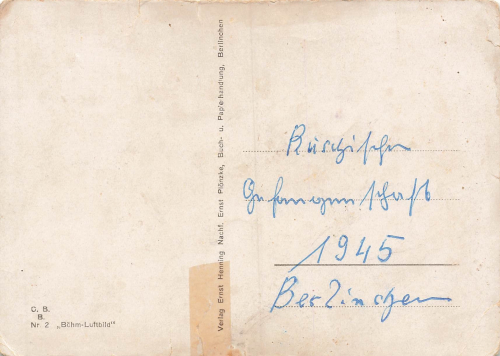 Verlag Ernst Henning Nachf. Ernst Plönzke, Buch- u. Papierhandlung, Berlinchen
Rußische
Gefangenschaft
1945
Berlinchen
G. B.
B.
Nr. 2 „Böhm-Luftbild"